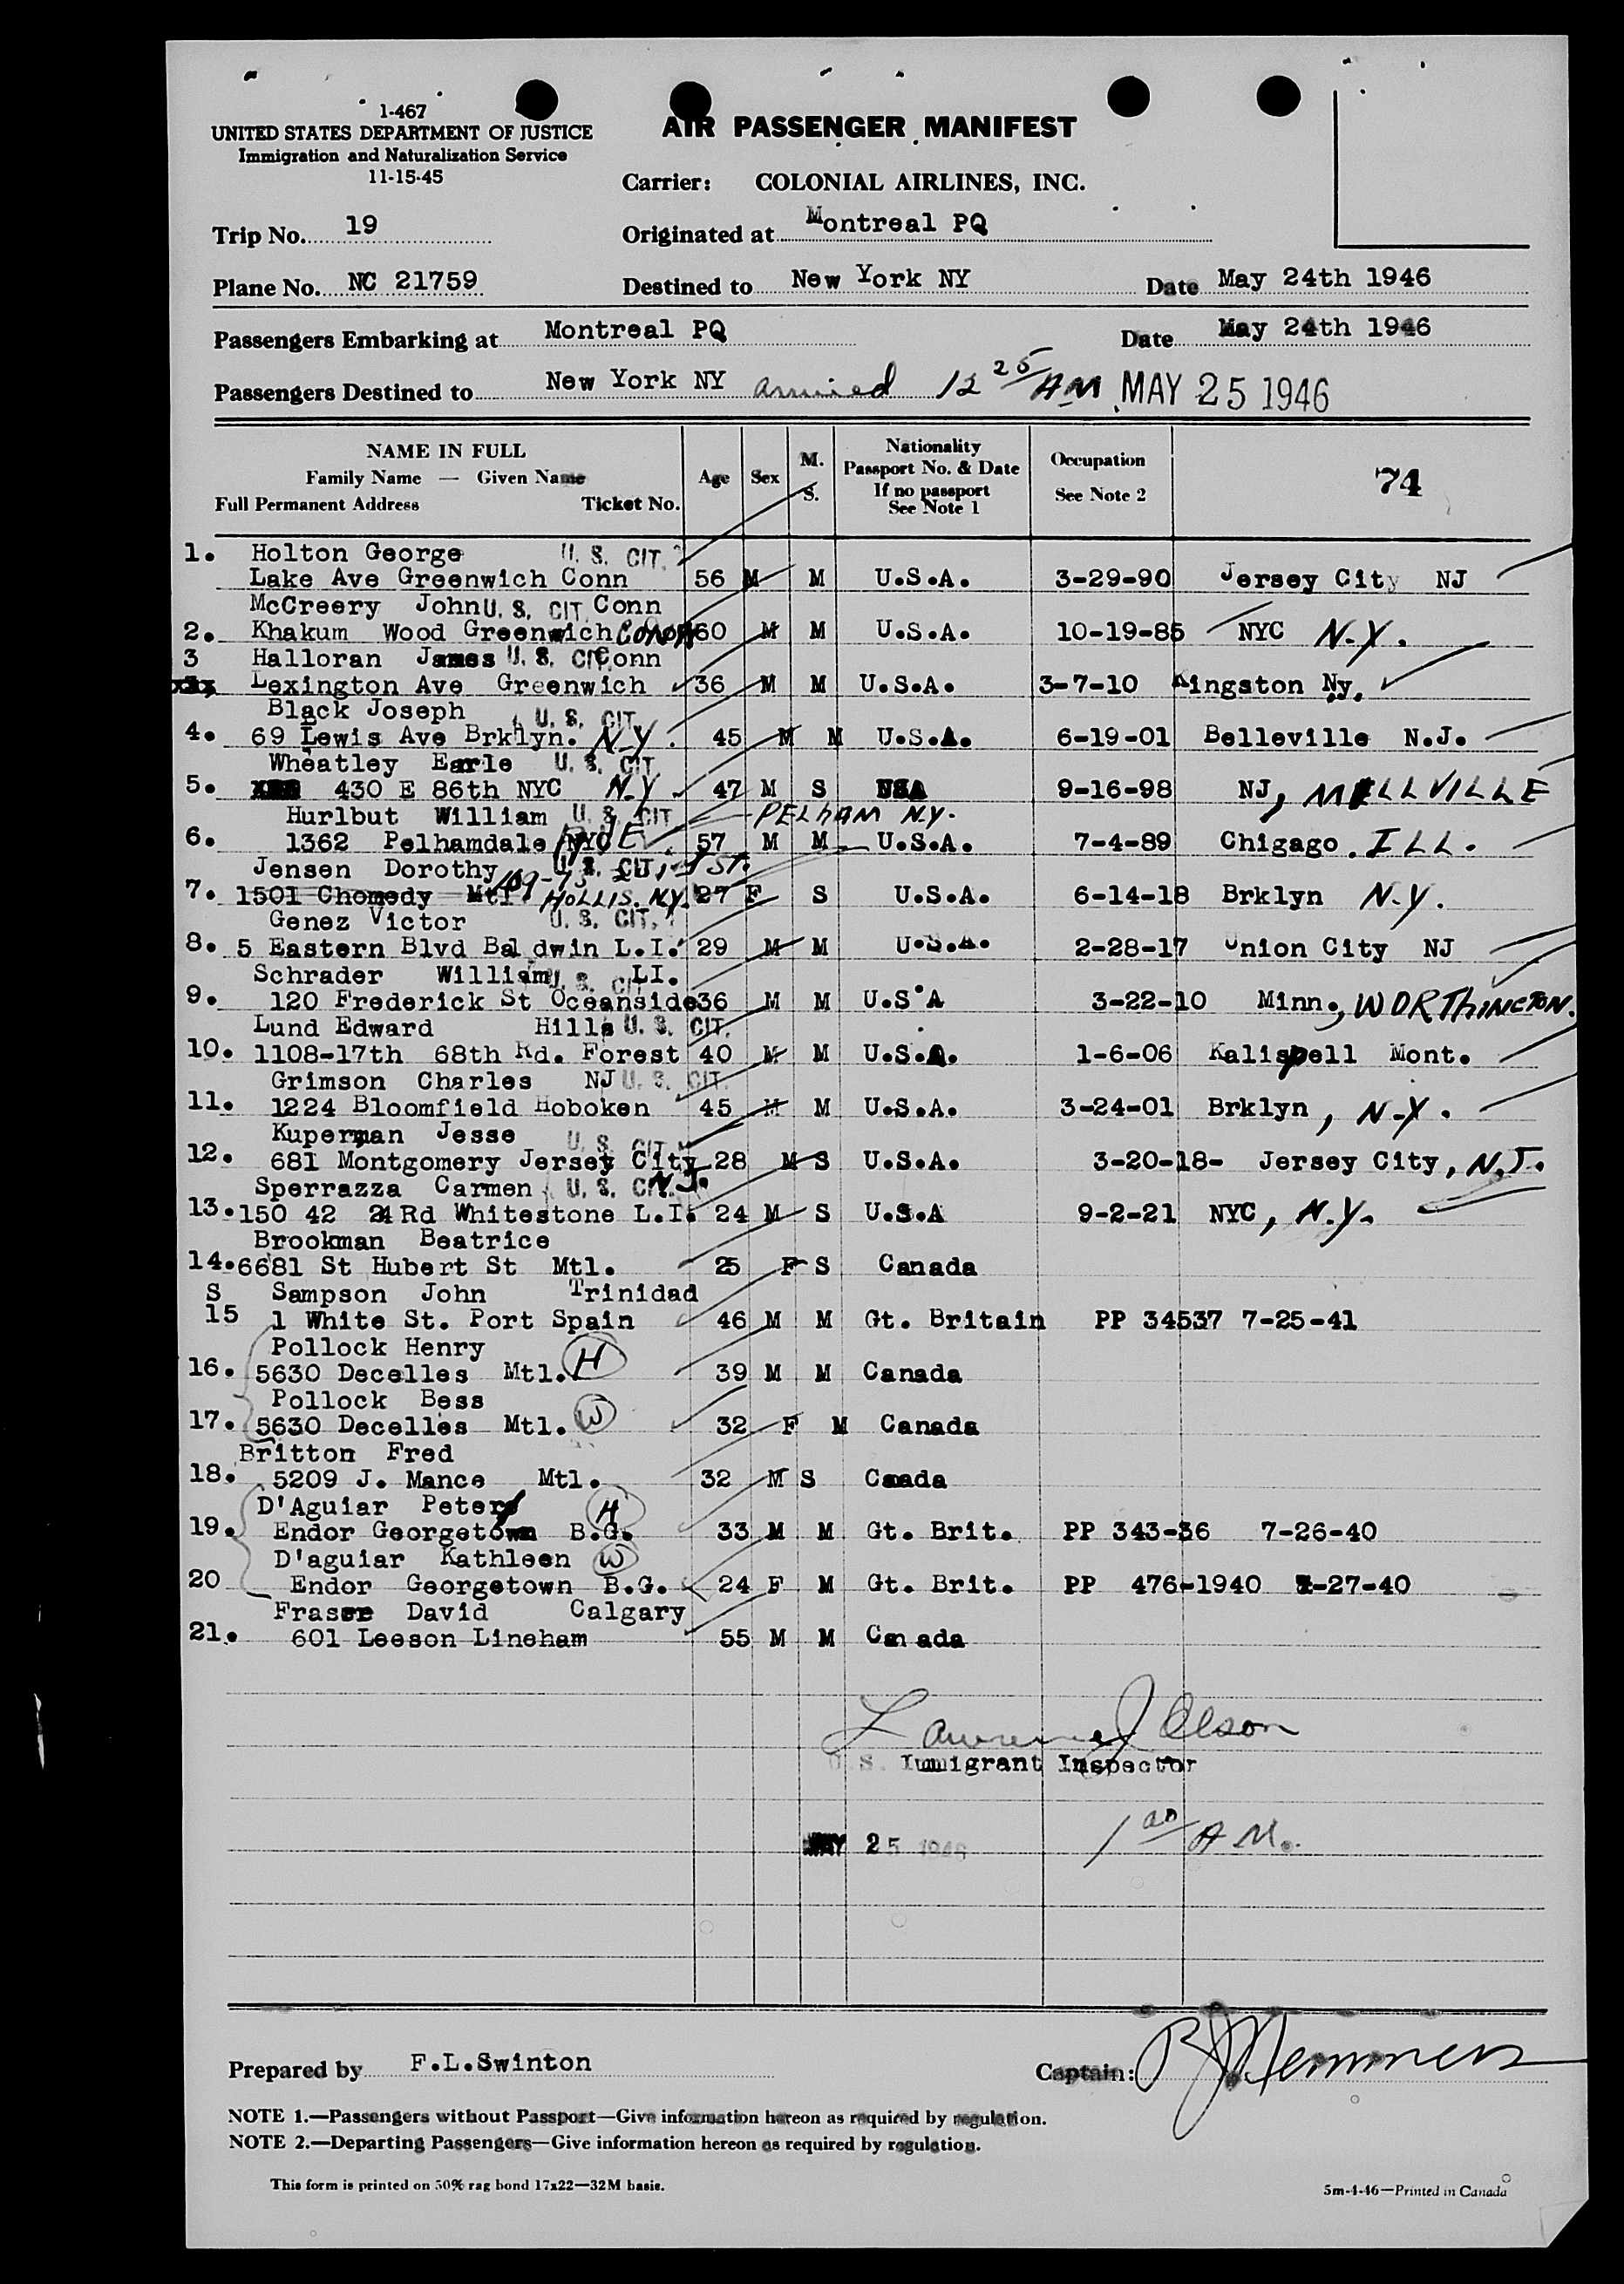 1-467
UNITED STATES DEPARTMENT OF JUSTICE
Immigration and Naturalization Service
11-15-45
AIR PASSENGER MANIFEST
Carrier: COLONIAL AIRLINES, INC.
Trip No. 19
Originated at Montreal PQ
Plane No. NC 21759
Destined to New York NY
Date May 24th 1946
Passengers Embarking at Montreal PQ
Date May 24th 1946
Passengers Destined to New York NY arrived 12 25/AM MAY 25 1946
NAME IN FULL
Family Name — Given Name
Full Permanent Address Ticket No.
Age
Sex
M.
S.
Nationality
Passport No. & Date
If no passport
See Note 1
Occupation
See Note 2
74
1. Holton George U. S. CIT.
Lake Ave Greenwich Conn 56 M M U.S.A. 3-29-90 Jersey City NJ
McCreery John U. S. CIT. Conn
2. Khakum Wood Greenwich CONN 60 M M U.S.A. 10-19-85 NYC N.Y.
3 Halloran James U. S. CIT Conn
Lexington Ave Greenwich 36 M M U.S.A. 3-7-10 Kingston Ny.
Black Joseph U. S. CIT.
4. 69 Lewis Ave Brklyn. N.Y. 45 M M U.S.A. 6-19-01 Belleville N.J.
Wheatley Earle U. S. CIT
5. 430 E 86th NYC N.Y. 47 M S USA 9-16-98 NJ, MILLVILLE
Hurlbut William U. S. CIT PELHAM N.Y.
6. 1362 Pelhamdale NYC 57 M M U.S.A. 7-4-89 Chigago. ILL.
Jensen Dorothy U. S. CIT. ST.
7. 1501 Chomedy Mtl. HOLLIS. N.Y. 27 F S U.S.A. 6-14-18 Brklyn N.Y.
Genez Victor U. S. CIT.
8. 5 Eastern Blvd Baldwin L.I. 29 M M U.S.A. 2-28-17 Union City NJ
Schrader William U. S. CIT LI.
9. 120 Frederick St Oceanside 36 M M U.S.A 3-22-10 Minn., WORTHINGTON.
Lund Edward Hills U. S. CIT.
10. 1108-17th 68th Rd. Forest 40 M M U.S.A. 1-6-06 Kalispell Mont.
Grimson Charles NJ U. S. CIT.
11. 1224 Bloomfield Hoboken 45 M M U.S.A. 3-24-01 Brklyn, N.Y.
Kuperman Jesse U. S. CIT
12. 681 Montgomery Jersey City 28 M S U.S.A. 3-20-18- Jersey City, N.J.
Sperrazza Carmen U. S. CIT. N.J.
13. 150 42 24 Rd Whitestone L.I. 24 M S U.S.A 9-2-21 NYC, N.Y.
Brookman Beatrice
14. 6681 St Hubert St Mtl. 25 F S Canada
S Sampson John Trinidad
15 1 White St. Port Spain 46 M M Gt. Britain PP 34537 7-25-41
Pollock Henry
16. 5630 Decelles Mtl. H 39 M M Canada
Pollock Bess
17. 5630 Decelles Mtl. W 32 F M Canada
Britton Fred
18. 5209 J. Mance Mtl. 32 M S Canada
D'Aguiar Peter H
19. Endor Georgetown B.G. 33 M M Gt. Brit. PP 343-36 7-26-40
D'aguiar Kathleen W
20 Endor Georgetown B.G. 24 F M Gt. Brit. PP 476-1940 -27-40
Fraser David Calgary
21. 601 Leeson Lineham 55 M M Can ada
Lawrence J Olson
U. S. Immigrant Inspector
MAY 25 1946
1 00/AM.
Prepared by F.L.Swinton
Captain:
NOTE 1.—Passengers without Passport—Give information hereon as required by regulation.
NOTE 2.—Departing Passengers—Give information hereon as required by regulation.
This form is printed on 50% rag bond 17x22—32M basis.
5m-4-46—Printed in Canada